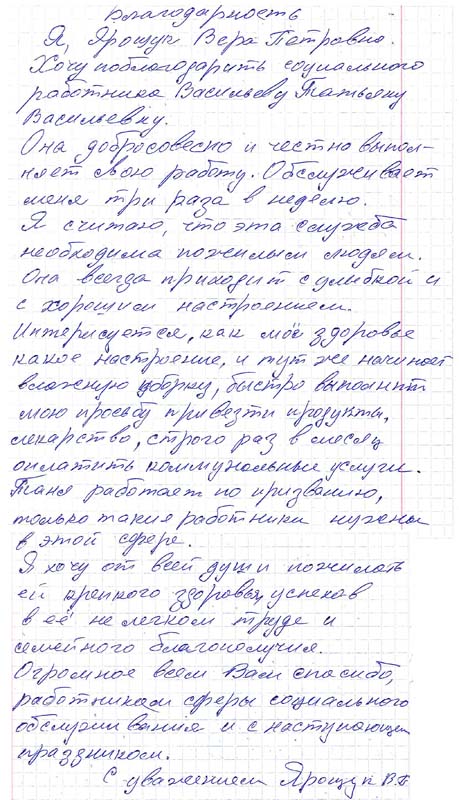 Благодарность
Я, Ярощук Вера Петровна.
Хочу поблагодарить социального
работника Васильеву Татьяну
Васильевну.
Она добросовесно и честно выпол-
няет свою работу. Обслуживает
меня три раза в неделю.
Я считаю, что эта служба
необходима пожилым людям.
Она всегда приходит с улыбкой и
с хорошим настроением.
Интерисуется, как моё здоровье
какое настроение, и тут же начинает
влажную уборку, быстро выполнит
мою просьбу привезти продукты,
лекарство, строго раз в месяц
оплатить коммунальные услуги.
Таня работает по призванию,
только такие работники нужны
в этой сфере.
Я хочу от всей души пожилать
ей крепкого здоровья, успехов
в её не легком труде и
семейного благополучия.
Огромное всем Вам спасибо,
работникам сферы социального
обслуживания и с наступающим
праздником.
С уважением Ярощук В.П